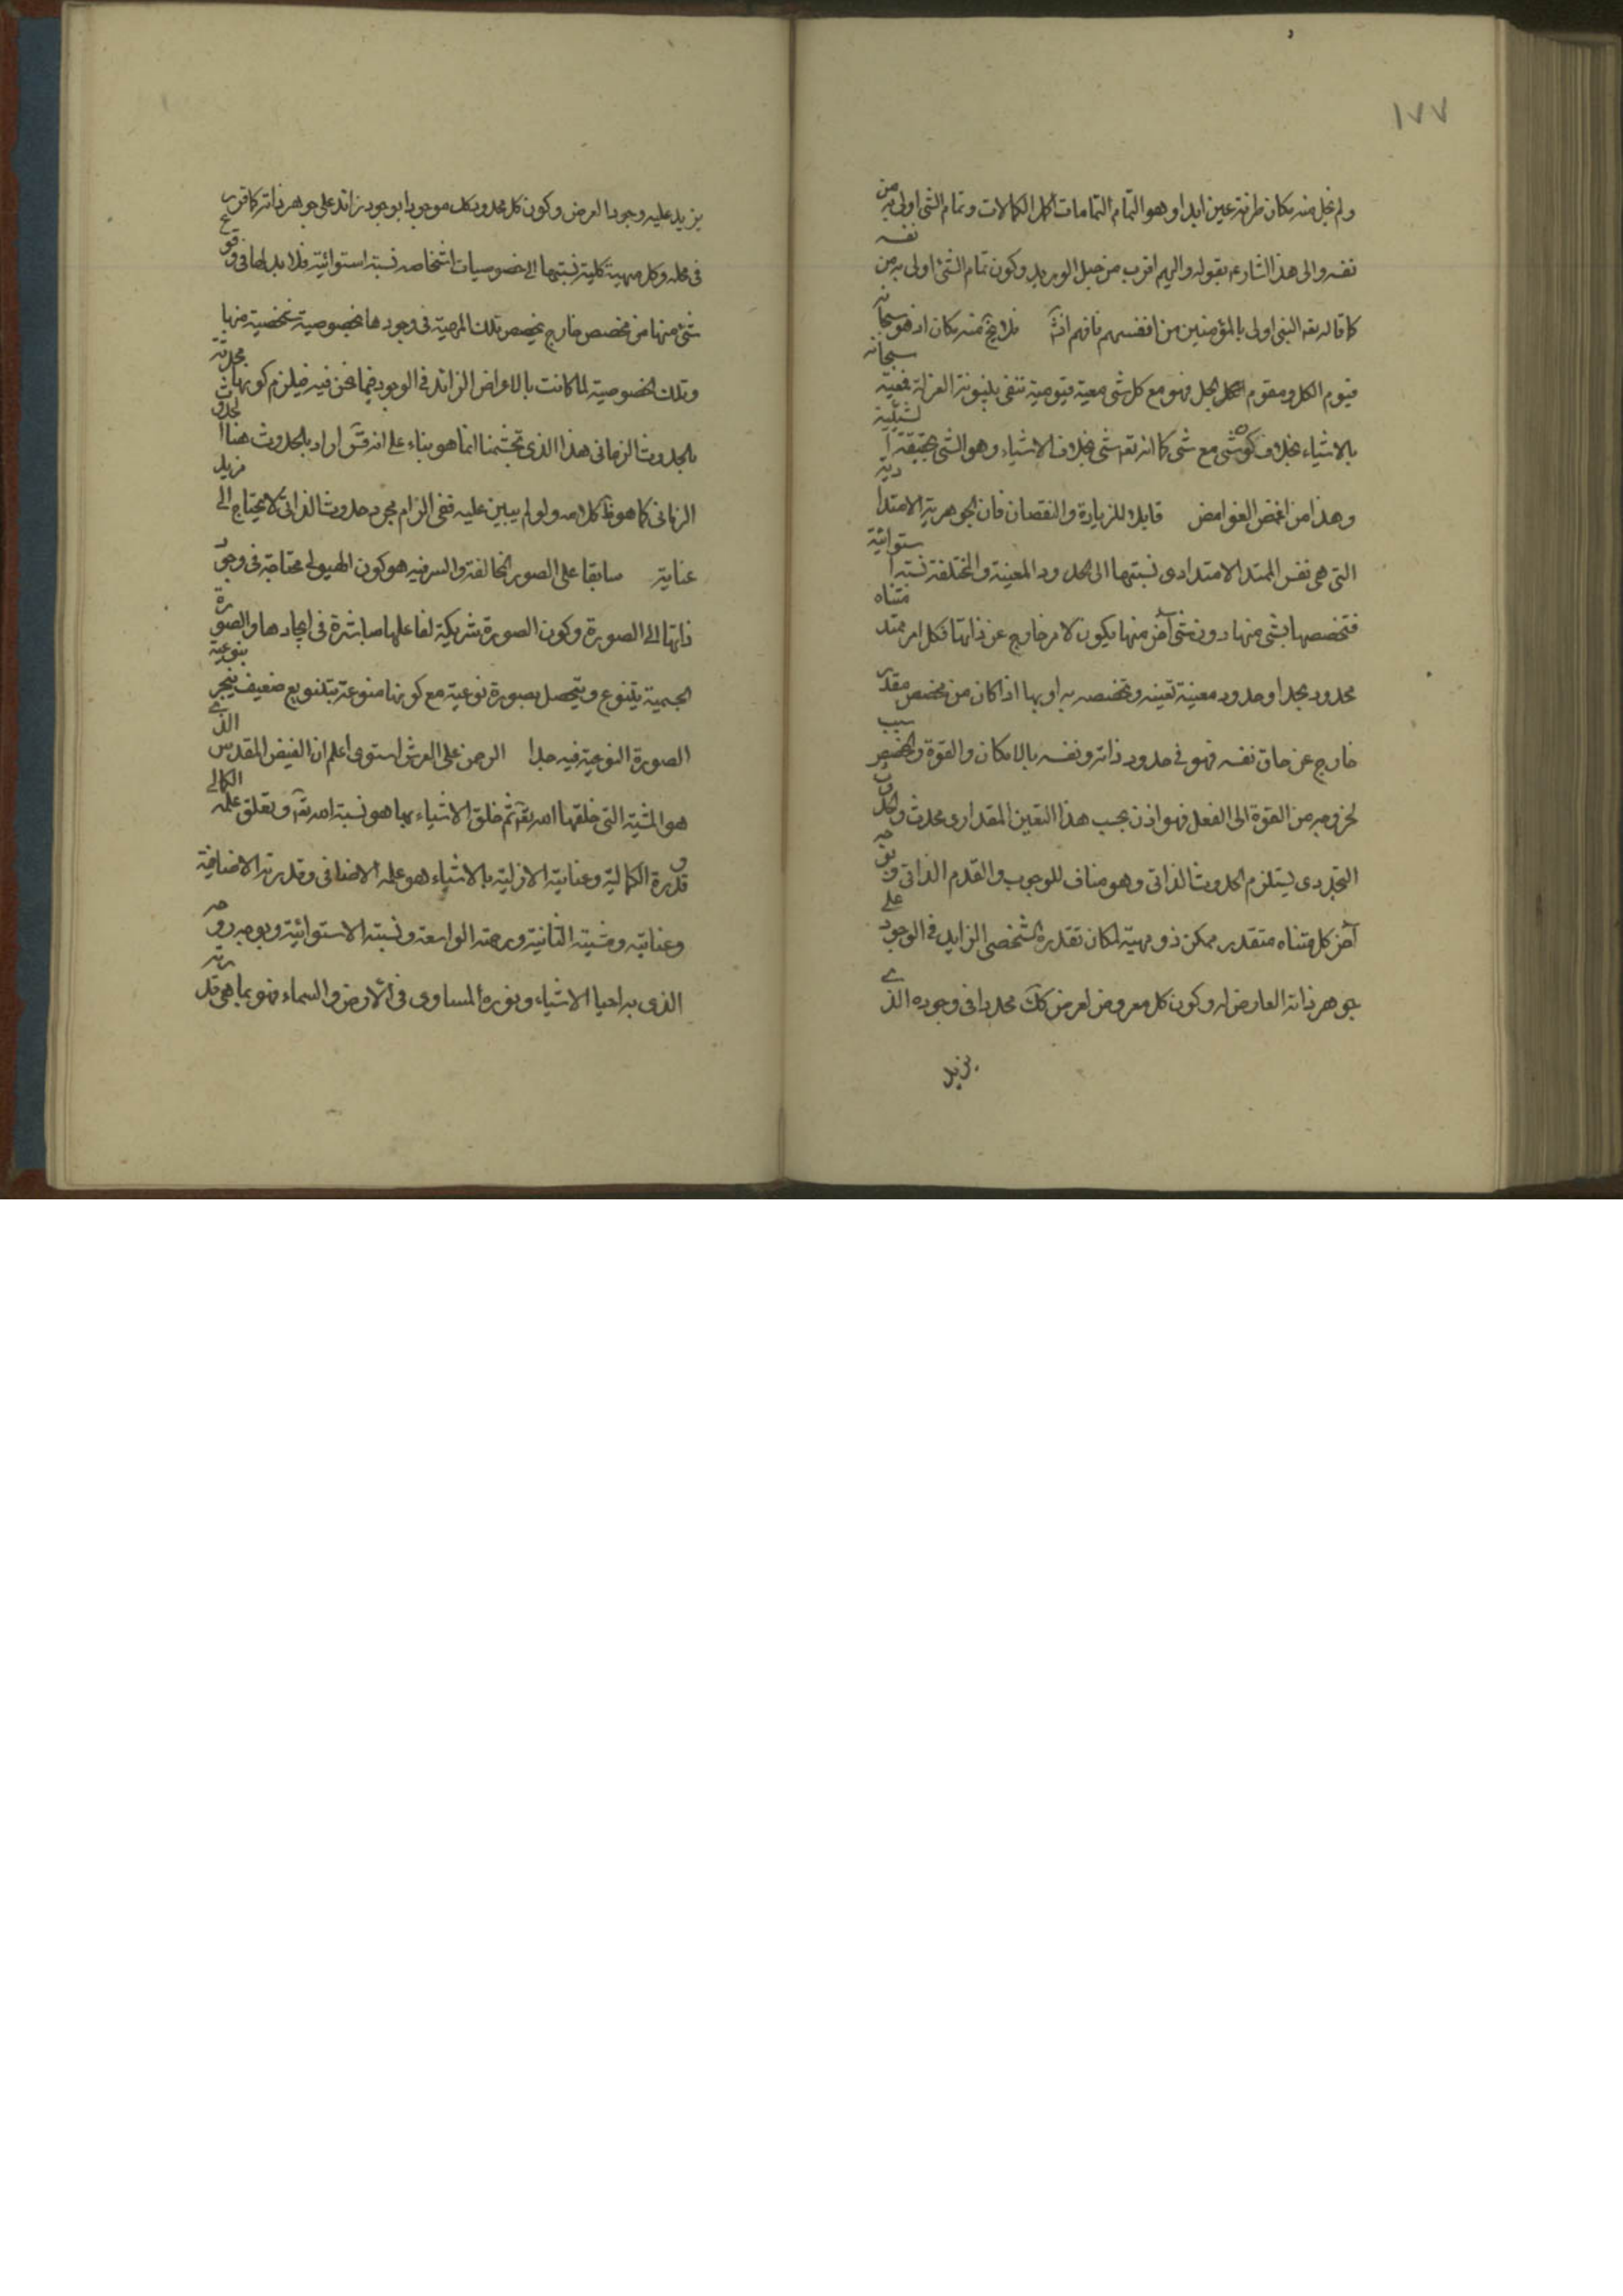 ١٧٧
ولم يخل منه مكان طرفة عين ابدا وهو التمام التمامات كل الكمالات وتمام الشئ اولى به من
نفسه والى هذا اشار بقوله واليهم اقرب من حبل الوريد وكون تمام الشئ اولى به من نفسه
كما قال تعه النبى اولى بالمؤمنين من انفسهم فافهم انشآ فلا يخ منه مكان اذ هو سبحانه
قيوم الكل ومقوم الكل الجل فهو مع كل شئ معية قيومية تنفى بينونة العزلة فمعيته سبحانه
بالاشياء بخلاف كون شئ مع شئ كما انه تعه شئ بخلاف الاشياء وهو الشئ بحقيقة الشيئية
وهذا من اغمض الغوامض قابلا للزيادة والنقصان فان الجوهرية الامتدادية
التى هى نفس الممتد الامتدادى نسبتها الى الحدود المعينة والمختلفة نسبة استوائية
فتخصصها بشئ منها دون شئ آخر منها يكون لامر خارج عن ذاتها فكل امر ممتد متناه
محدود بحد او حدود معينة تعينه وتخصصه به او بها اذا كان من مخصص مقدر
خارج عن حاق نفسه فهو فى حدود ذاته ونفسه بالامكان والقوة والمخصص سبب
لخروجه من القوة الى الفعل فهو اذن بحسب هذا التعين المقدارى محدث والحدوث
التجددى يستلزم الحدوث الذاتى وهو مناف للوجوب والقدم الذاتى وبوجه
آخر كل متناه متقدر ممكن ذو مهية لمكان تقدره الشخصى الزايد فى الوجود على
جوهر ذاته العارض له وكون كل معروض لعرض كك محددا فى وجوده الذى
يزيد
يزيد عليه وجود العرض وكون كل محدود كك موجودا بوجود زائد على جوهر ذاته كما قرر
فى محله وكل مهية كلية نسبتها الى خصوصيات اشخاصه نسبة استوائية فلا بد لها فى وقوع
شئ منها من مخصص خارج يخصص تلك المهية فى وجودها بخصوصية شخصية منها
وتلك الخصوصية لما كانت بالاعراض الزائد فى الوجود فيما نحن فيه فيلزم كونها محدثة
بالحدوث الزمانى هذا الذى تجشمنا انما هو بناء على انه قس اراد بالحدوث هنا الحدوث
الزمانى كما هو ظ كلامه ولو لم يبين عليه ففى الزام مجرد حدوث الذاتى لا يحتاج الى مزيد
عناية سابقا على الصور الخالفة والسر فيه هو كون الهيولى محتاجة فى وجود
ذاتها الى الصورة وكون الصورة شريكة لفاعلها مباشرة فى ايجادها والصورة
الجسمية يتنوع ويتحصل بصورة نوعية مع كونها منوعة بتنويع ضعيف ينجر بنوعية
الصورة النوعية فيه جدا الرحمن على العرش استوى اعلم ان الفيض المقدس الذى
هو المشية التى خلقها الله تعه ثم خلق الاشياء بها هو نسبة الله تعه وتعلق علمه الكمالى
وقدرة الكمالية وعنايته الازلية بالاشياء هو علمه الاضافى وقدرته الاضافية
وعنايته ومشيته الثانية ورحمته الواسعة ونسبته الاستوائية وبوجه روحه
الذى به احيا الاشياء ونوره المساوى فى الارض والسماء فهو بما هى قدرته